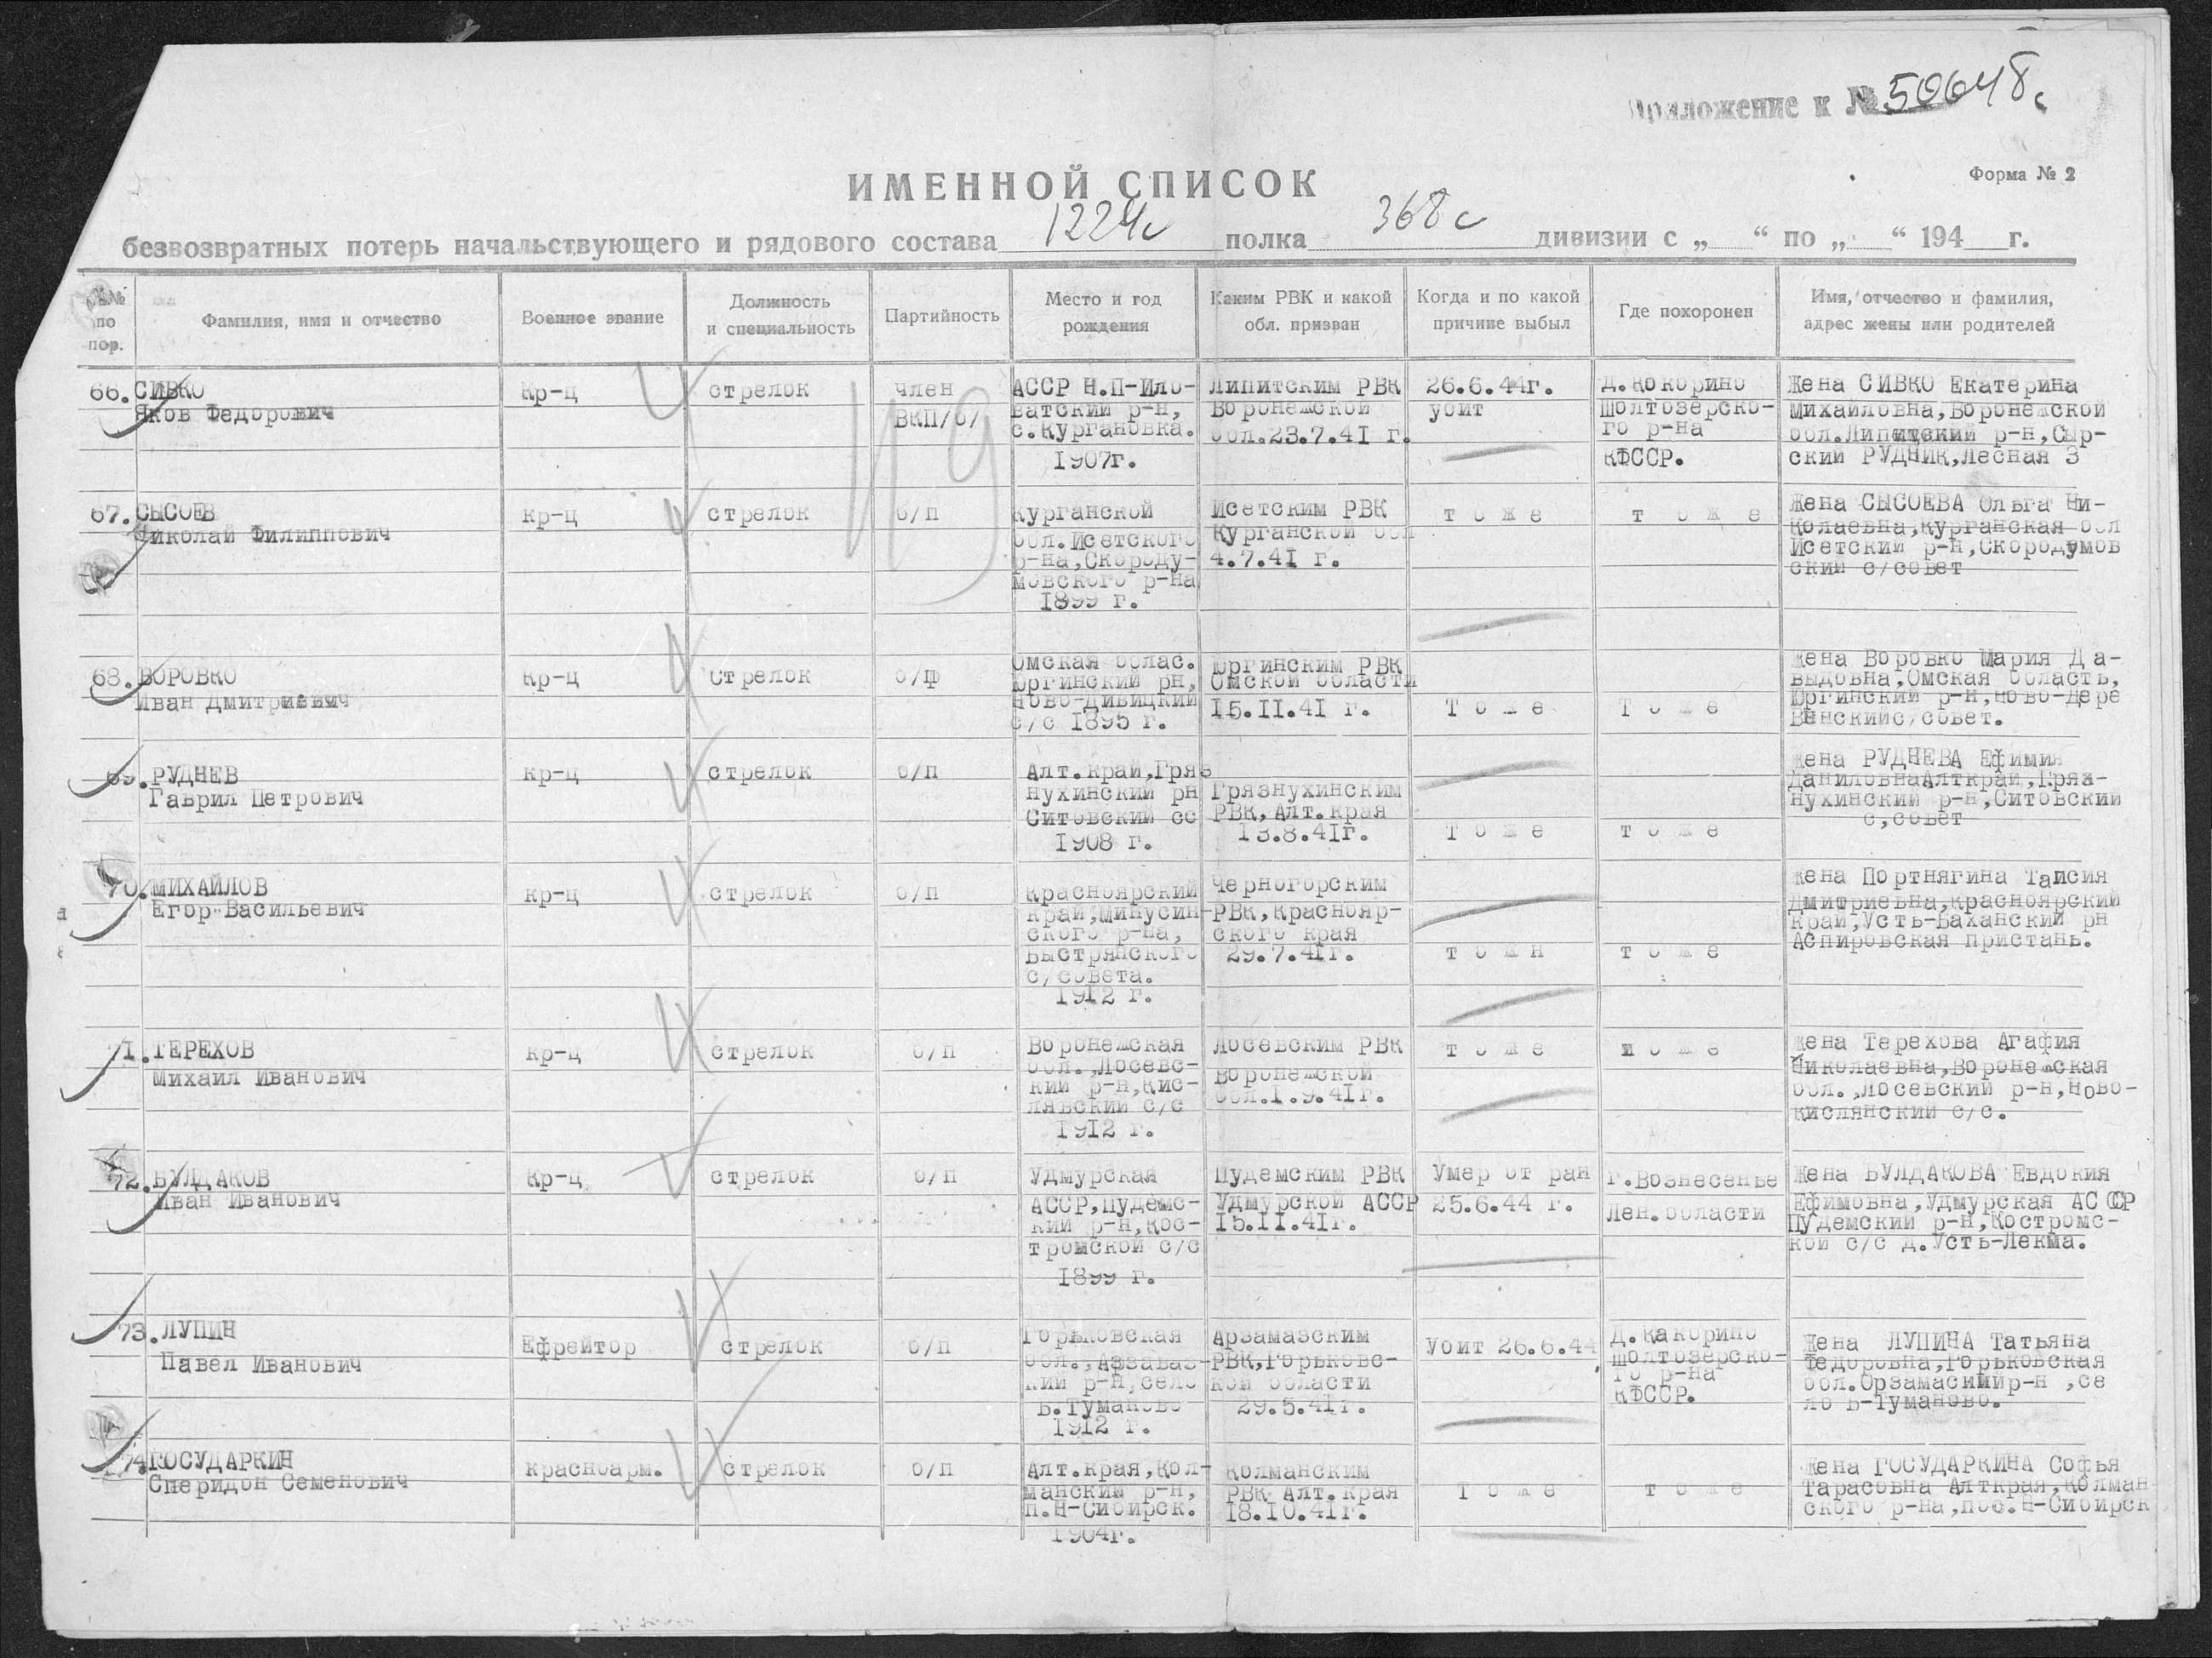 Приложение к № 50648с
Форма № 2
ИМЕННОЙ СПИСОК
безвозвратных потерь начальствующего и рядового состава 1224с полка 368с дивизии с „ “ по „ “ 194 г.
№№ по пор.
Фамилия, имя и отчество
Военное звание
Должность и специальность
Партийность
Место и год рождения
Каким РВК и какой обл. призван
Когда и по какой причине выбыл
Где похоронен
Имя, отчество и фамилия, адрес жены или родителей
119
66. СИВКО
Яков Федорович
Кр-ц
стрелок
член
ВКП/б/
АССР Н.П-Ило-
ватский р-н,
с.Кургановка.
1907г.
Липитским РВК
Воронежской
обл.23.7.41 г.
26.6.44г.
убит
д.Кокорино
Шолтозерско-
го р-на
КФССР.
Жена СИВКО Екатерина
Михайловна,Воронежской
обл.Липитский р-н,Сыр-
ский РУДНИК,Лесная 3
67. СЫСОЕВ
Николай Филиппович
кр-ц
стрелок
б/п
Курганской
обл.Исетского
р-на,Скороду-
мовского р-на
1899 г.
Исетским РВК
Курганской обл
4.7.41 г.
т о ж е
т о ж е
Жена СЫСОЕВА Ольга Ни-
колаевна,Курганская обл
Исетский р-н,Скородумов
ский с/совет
68. ВОРОВКО
Иван Дмитриевич
Кр-ц
Стрелок
б/п
Омская облас.
Юргинский рн,
Ново-дивицкий
с/с 1895 г.
Юргинским РВК
Омской области
15.11.41 г.
Т о ж е
Т о ж е
Жена Воровко Мария Да-
выдовна,Омская область,
Юргинский р-н,Ново-Дере
венскийс/совет.
69. РУДНЕВ
Гаврил Петрович
кр-ц
стрелок
б/п
Алт.край,Гряз
нухинский рн
Ситовский сс
1908 г.
Грязнухинским
РВК,Алт.края
13.8.41г.
Т о ж е
т о ж е
Жена РУДНЕВА Ефимия
ДаниловнаАлткрай,Гряз-
нухинский р-н,Ситовский
с,совет
70. МИХАЙЛОВ
Егор Васильевич
кр-ц
стрелок
б/п
Красноярский
край,Минусин-
ского р-на,
Быстрянского
с/совета.
1912 г.
Черногорским
РВК,Краснояр-
ского края
29.7.41г.
т о ж н
т о ж е
Жена Портнягина Таисия
Дмитриевна,Красноярский
край,Усть-Баханский рн
Аспировская пристань.
71. ТЕРЕХОВ
Михаил Иванович
кр-ц
стрелок
б/п
Воронежская
обл.,Лосевс-
кий р-н,Кис-
лявский с/с
1912 г.
Лосевским РВК
Воронежской
обл.1.9.41г.
т о ж е
т о ж е
Жена Терехова Агафия
Николаевна,Воронежская
обл.,Лосевский р-н,Ново-
кислянский с/с.
72. БУЛДАКОВ
Иван Иванович
Кр-ц
стрелок
б/п
Удмурская
АССР,Пудемс-
кий р-н,Кос-
тромской с/с
1899 г.
Пудемским РВК
Удмурской АССР
15.11.41г.
Умер от ран
25.6.44 г.
г.Вознесенье
Лен.области
Жена БУЛДАКОВА Евдокия
Ефимовна,Удмурская АССР
Пудемский р-н,Костромс-
кой с/с д.Усть-Лекма.
73. ЛУПИН
Павел Иванович
Ефрейтор
стрелок
б/п
Горьковская
обл.,Арзамас-
кий р-н,село
Б.Туманово
1912 г.
Арзамазским
РВК,Горьковс-
кой области
29.5.41г.
Убит 26.6.44
Д.Какорино
Шолтозерско-
го р-на
КФССР.
Жена ЛУПИНА Татьяна
Федоровна,Горьковская
обл.Орзамаскийр-н ,се
ло Б-Туманово.
74. ГОСУДАРКИН
Сперидон Семенович
красноарм.
стрелок
б/п
Алт.края,Кол-
манский р-н,
п.Н-Сибирск.
1904г.
Колманским
РВК Алт.края
18.10.41г.
Т о ж е
т о ж е
Жена ГОСУДАРКИНА Софья
Тарасовна Алткрая,Колман
ского р-на,пос.Н-Сибирск